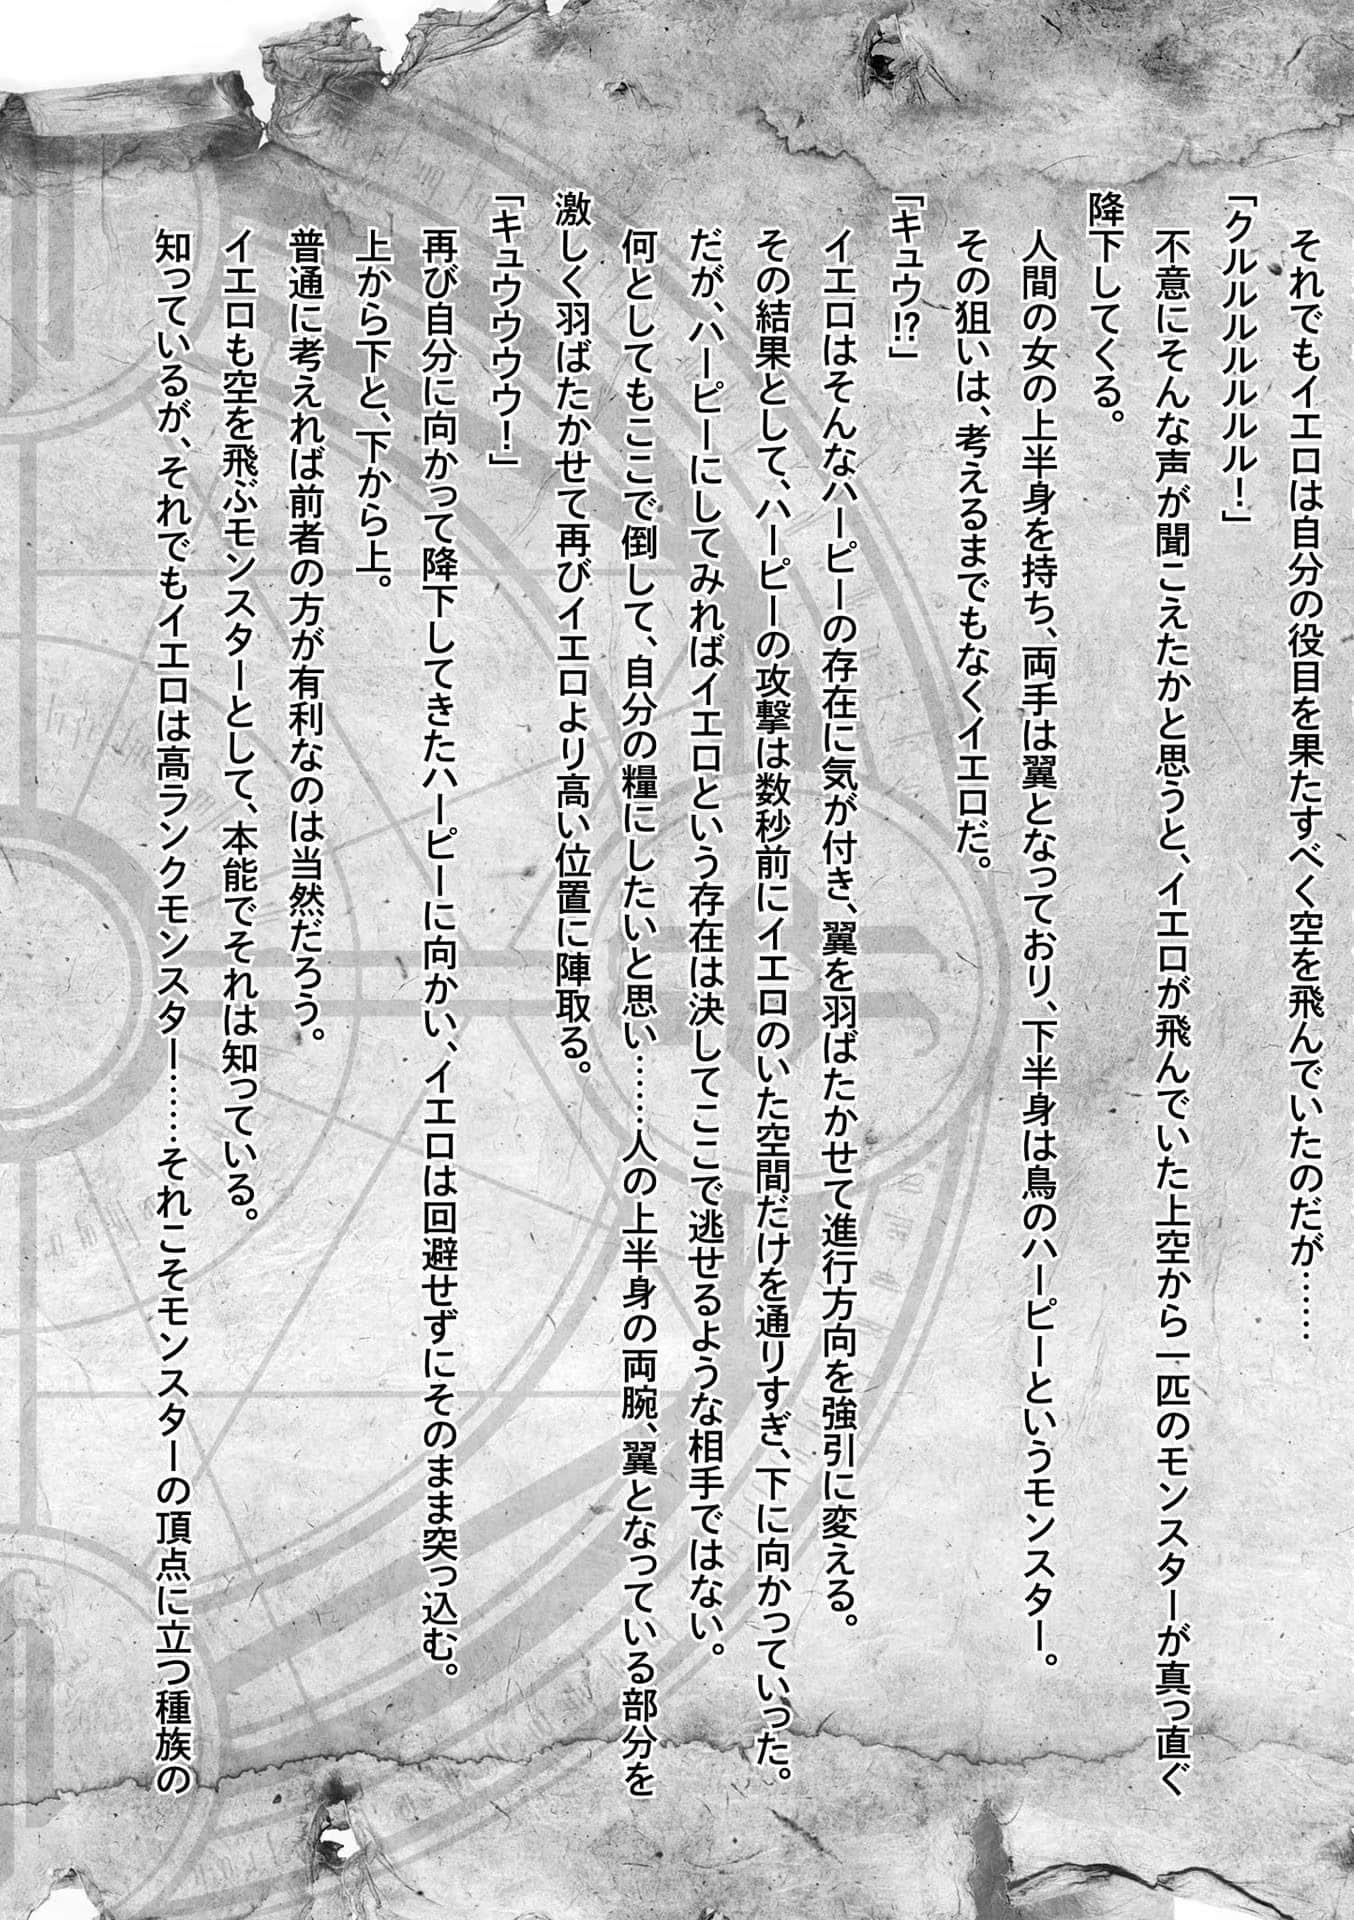 それでもイエロは自分の役目を果たすべく空を飛んでいたのだが……
「クルルルルルルル！」
不意にそんな声が聞こえたかと思うと、イエロが飛んでいた上空から一匹のモンスターが真っ直ぐ
降下してくる。
人間の女の上半身を持ち、両手は翼となっており、下半身は鳥のハーピーというモンスター。
その狙いは、考えるまでもなくイエロだ。
「キュウ!?」
イエロはそんなハーピーの存在に気が付き、翼を羽ばたかせて進行方向を強引に変える。
その結果として、ハーピーの攻撃は数秒前にイエロのいた空間だけを通りすぎ、下に向かっていった。
だが、ハーピーにしてみればイエロという存在は決してここで逃せるような相手ではない。
何としてもここで倒して、自分の糧にしたいと思い……人の上半身の両腕、翼となっている部分を
激しく羽ばたかせて再びイエロより高い位置に陣取る。
「キュウウウウ！」
再び自分に向かって降下してきたハーピーに向かい、イエロは回避せずにそのまま突っ込む。
上から下と、下から上。
普通に考えれば前者の方が有利なのは当然だろう。
イエロも空を飛ぶモンスターとして、本能でそれは知っている。
知っているが、それでもイエロは高ランクモンスター……それこそモンスターの頂点に立つ種族の